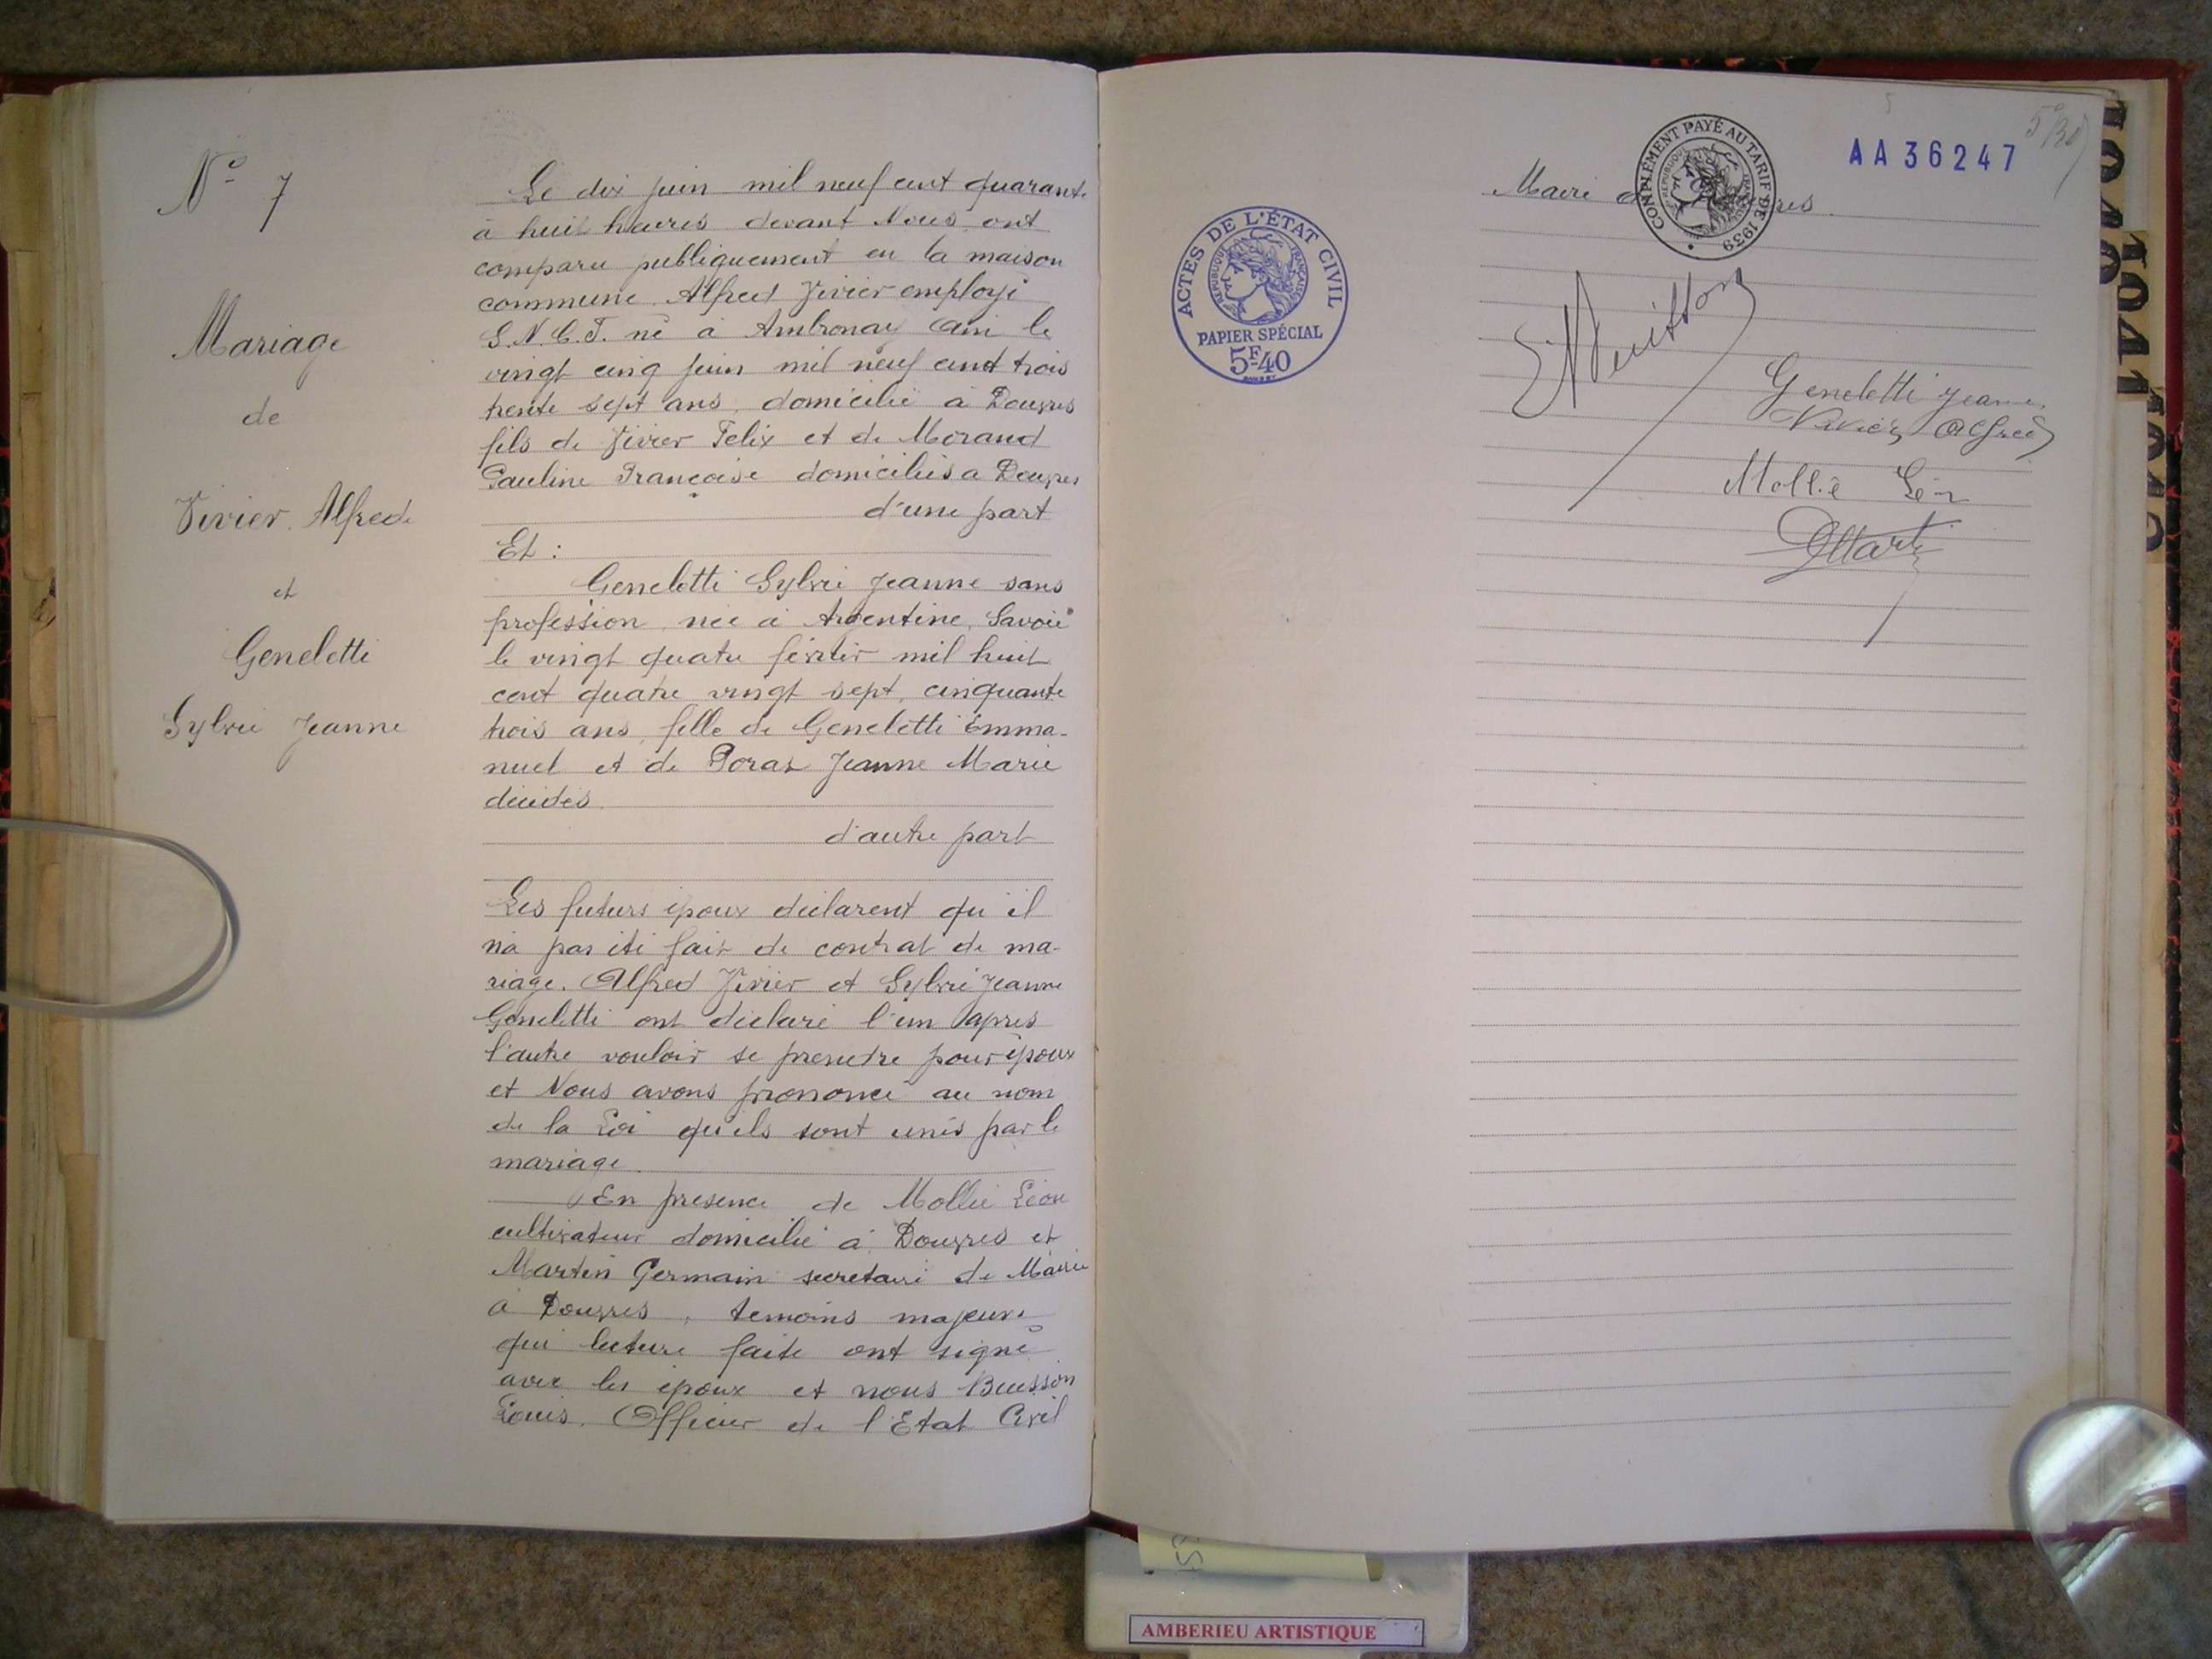 N° 7
Mariage
de
Vivier Alfred
et
Geneletti
Sylvie Jeanne
Le dix juin mil neuf cent quarante
à huit heures devant Nous ont
comparu publiquement en la maison
commune Alfred Vivier employé
S.N.C.F. né à Ambronay Ain le
vingt cinq juin mil neuf cent trois
trente sept ans, domicilié à Douvres
fils de Vivier Felix et de Morand
Pauline Françoise domiciliés a Douvres
d'une part
Et :
Geneletti Sylvie Jeanne sans
profession née à Argentine, Savoie
le vingt quatre février mil huit
cent quatre vingt sept, cinquante
trois ans, fille de Geneletti Emma-
nuel et de Poraz Jeanne Marie
décédés
d'autre part
Les futurs époux déclarent qu'il
n'a pas été fait de contrat de ma-
riage. Alfred Vivier et Sylvie Jeanne
Geneletti ont déclaré l'un apres
l'autre vouloir se prendre pour époux
et Nous avons prononcé au nom
de la Loi qu'ils sont unis par le
mariage.
En presence de Mollie Léon
cultivateur domicilié à Douvres et
Martin Germain secretaire de Mairie
à Douvres, temoins majeurs
qui lecture faite ont signé
avec les époux et nous Buisson
Louis. Officier de l'Etat Civil
AA 36247
COMPLÉMENT PAYÉ AU TARIF DE 1939
Maire
ACTES DE L'ÉTAT CIVIL
RÉPUBLIQUE FRANÇAISE
PAPIER SPÉCIAL
5F40
Geneletti Jeanne
Vivier Alfred
Mollie Léon
1940
1941
1942
AMBERIEU ARTISTIQUE